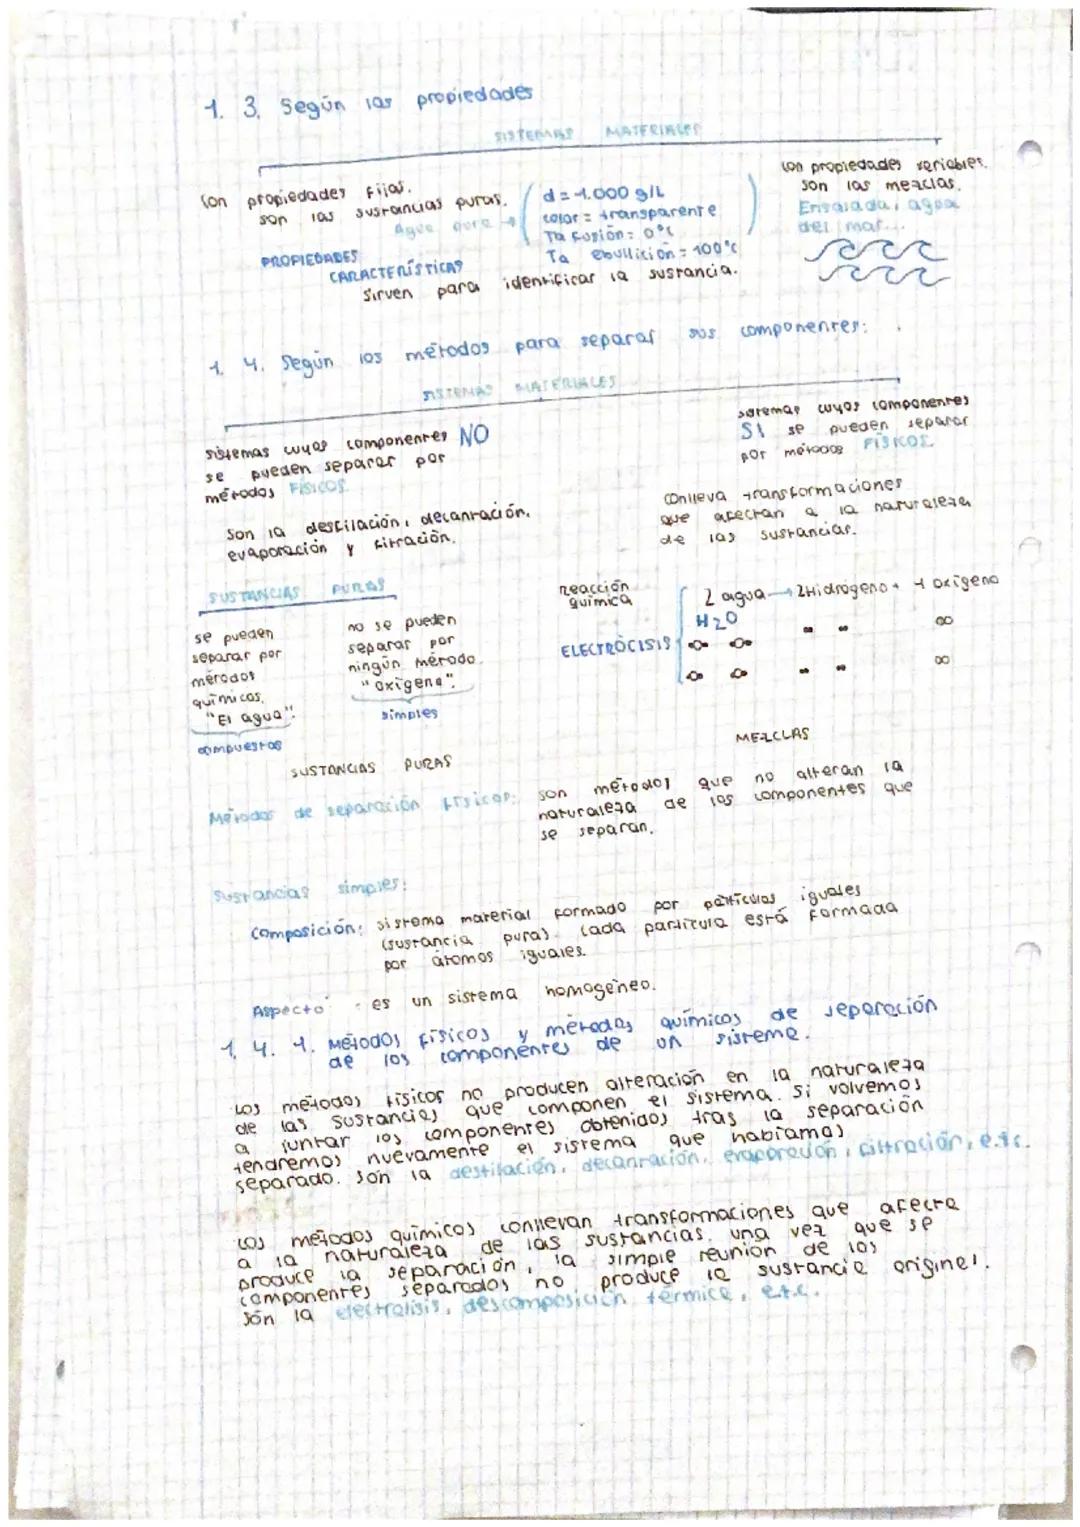 1. 3. Según las propiedades
SISTEMAS MATERIALES
Con propiedades fijas.
son las sustancias puras.
Agua pura →
d = 1.000 g/L
color = transparente
Ta fusión = 0°C
Ta ebullición = 100°C
PROPIEDADES
CARACTERÍSTICAS
Sirven para identificar la sustancia.
con propiedades variables.
son las mezclas.
Ensalada, agua
del mar...
1. 4. Según los métodos para separar sus componentes:
SISTEMAS MATERIALES
sistemas cuyos componentes NO
se pueden separar por
métodos FÍSICOS.
Son la destilación, decantación,
evaporación y filtración.
sistemas cuyos componentes
SI se pueden separar
por métodos FÍSICOS.
Conlleva transformaciones
que afectan a la naturaleza
de las sustancias.
SUSTANCIAS PURAS
se pueden
separar por
métodos
químicos.
"El agua".
compuestos
no se pueden
separar por
ningún método.
"oxígeno".
simples
reacción
química
ELECTRÓCISIS
2 agua → 2Hidrógeno + 1 oxígeno
H2O
SUSTANCIAS PURAS
MEZCLAS
Métodos de separación físicos: son métodos que no alteran la
naturaleza de los componentes que
se separan.
Sustancias simples:
Composición: sistema material formado por partículas iguales
(sustancia pura). Cada partícula está formada
por átomos iguales.
Aspecto: es un sistema homogéneo.
1. 4. 1. Métodos físicos y métodos químicos de separación
de los componentes de un sistema.
Los métodos físicos no producen alteración en la naturaleza
de las sustancias que componen el sistema. Si volvemos
a juntar los componentes obtenidos tras la separación
tendremos nuevamente el sistema que habíamos
separado. Són la destilación, decantación, evaporación, filtración, e.t.c.
Los métodos químicos conllevan transformaciones que afecta
a la naturaleza de las sustancias. una vez que se
produce la separación, la simple reunión de los
componentes separados no produce la sustancia original.
Són la electrolisis, descomposición térmica, e.t.c.